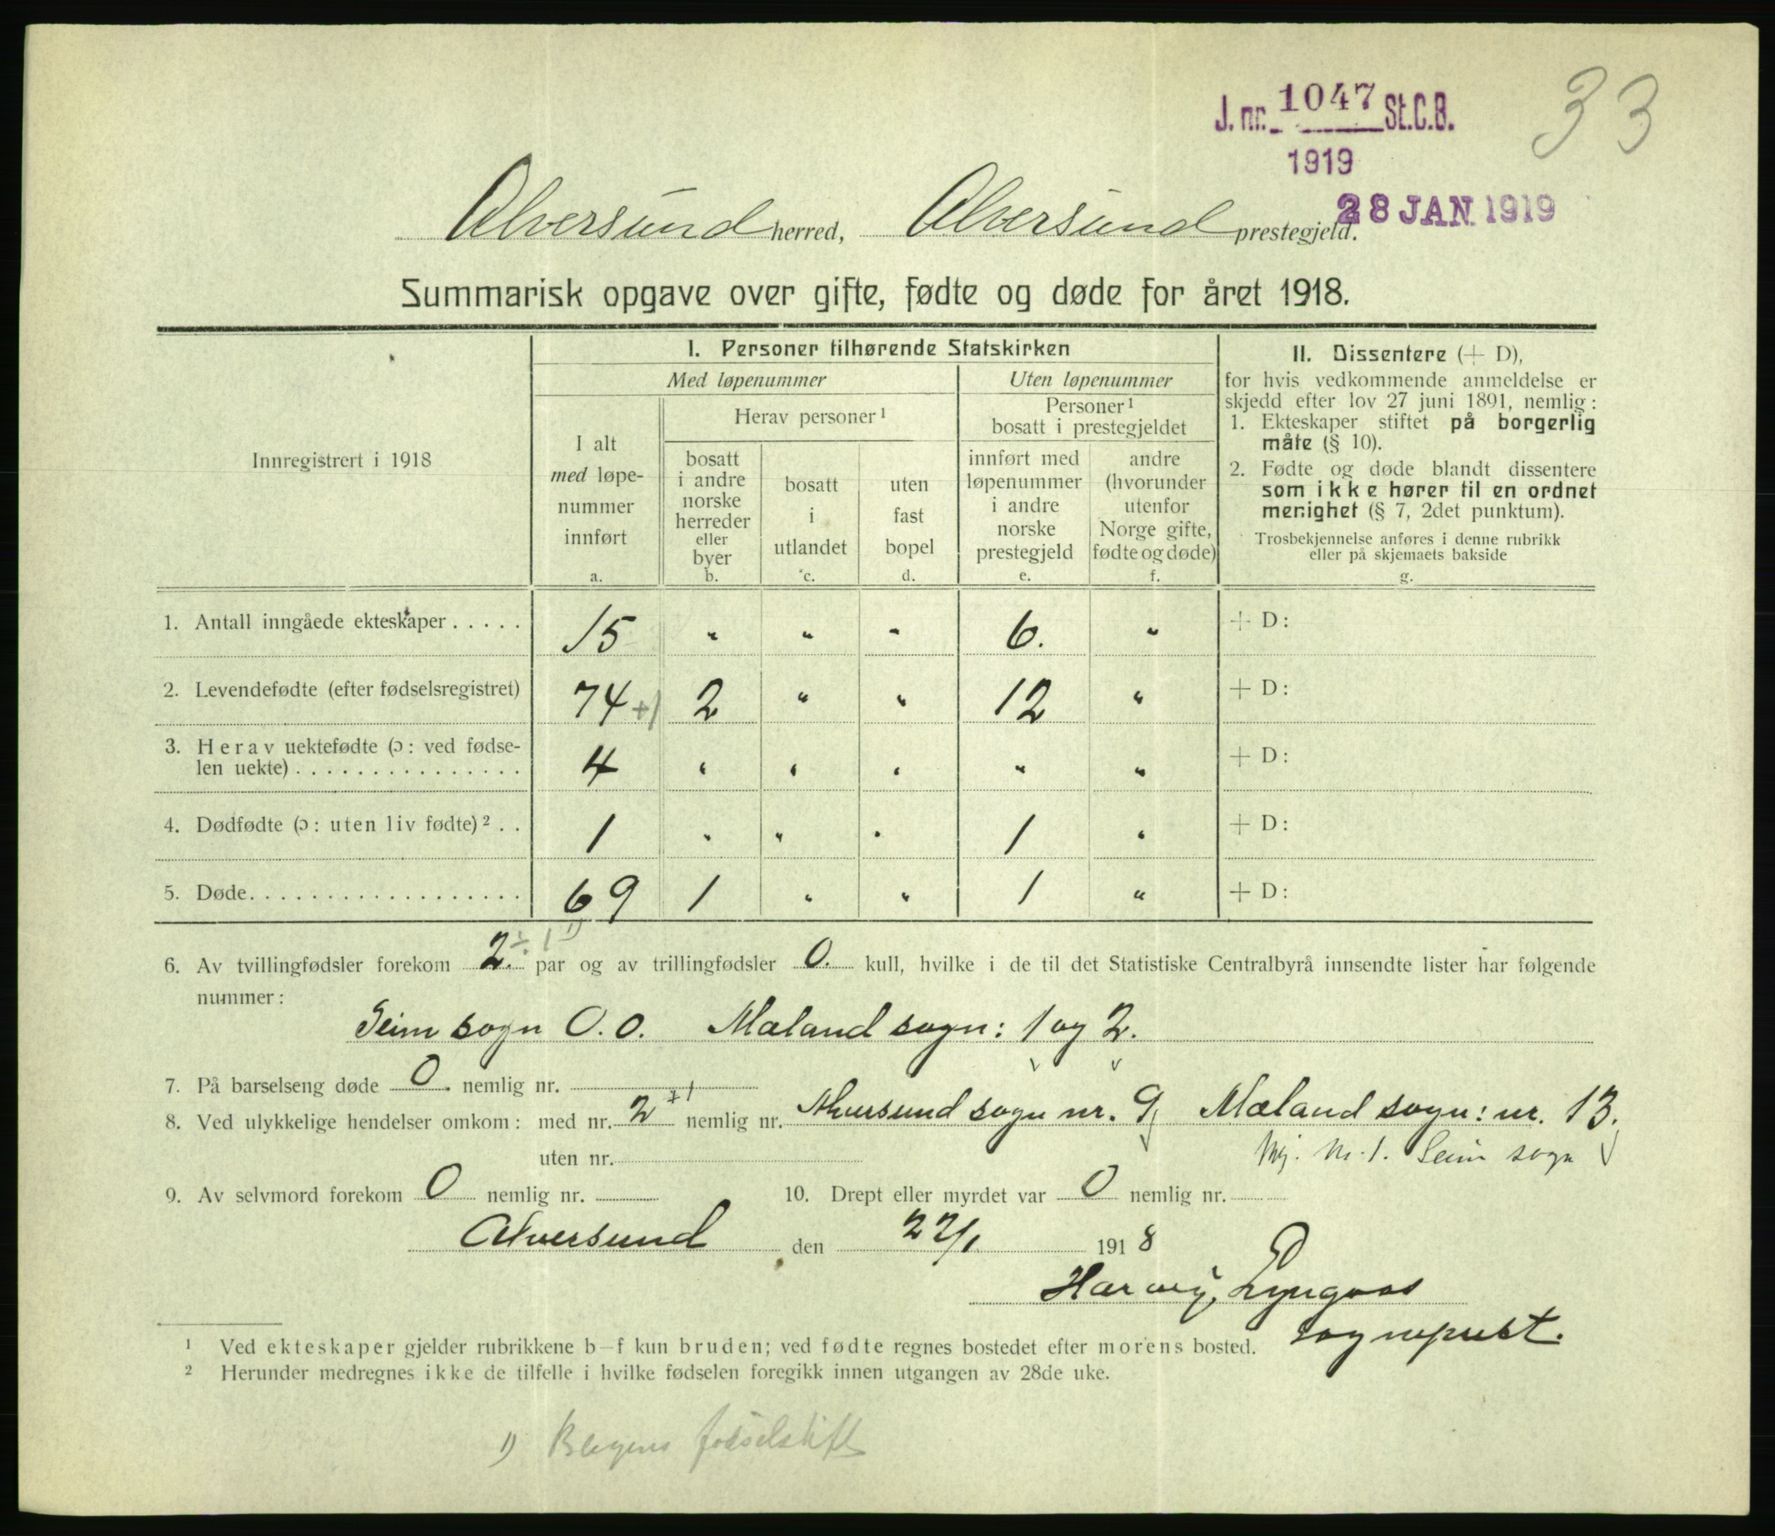 33
J. nr. 1047 St.C.B.
1919
28 JAN 1919
Alversund herred, Alversund prestegjeld.
Summarisk opgave over gifte, fødte og døde for året 1918.
Innregistrert i 1918
I. Personer tilhørende Statskirken
Med løpenummer
Uten løpenummer
I alt
med løpe-
nummer
innført
a.
Herav personer ¹
bosatt
i andre
norske
herreder
eller
byer
b.
bosatt
i
utlandet
c.
uten
fast
bopel
d.
Personer ¹
bosatt i prestegjeldet
innført med
løpenummer
i andre
norske
prestegjeld
e.
andre
(hvorunder
utenfor
Norge gifte,
fødte og døde)
f.
II. Dissentere (+ D),
for hvis vedkommende anmeldelse er
skjedd efter lov 27 juni 1891, nemlig:
1. Ekteskaper stiftet på borgerlig
måte (§ 10).
2. Fødte og døde blandt dissentere
som ikke hører til en ordnet
menighet (§ 7, 2det punktum).
Trosbekjennelse anføres i denne rubrikk
eller på skjemaets bakside
g.
1. Antall inngåede ekteskaper . . . . . 15 " " " 6. " + D:
2. Levendefødte (efter fødselsregistret) 74 +1 2 " " 12 " + D:
3. Herav uektefødte (ɔ: ved fødse-
len uekte) . . . . . . . . . . . . . . . 4 " " " " " + D:
4. Dødfødte (ɔ: uten liv fødte) ² . . 1 " " " 1 " + D:
5. Døde . . . . . . . . . . . . . . . . . . 69 1 " " 1 " + D:
6. Av tvillingfødsler forekom 2. ÷ 1 ¹) par og av trillingfødsler 0. kull, hvilke i de til det Statistiske Centralbyrå innsendte lister har følgende
nummer:
Seim sogn 0. 0. Mæland sogn: 1 og 2.
7. På barselseng døde 0 nemlig nr.
8. Ved ulykkelige hendelser omkom: med nr. 2 +1 nemlig nr. Alversund sogn nr. 9, Mæland sogn: nr. 13.
uten nr. nr. 1. Seim sogn
9. Av selvmord forekom 0 nemlig nr. 10. Drept eller myrdet var 0 nemlig nr.
Alversund den 22/1 1918
Lyngvos
sogneprest.
¹ Ved ekteskaper gjelder rubrikkene b—f kun bruden; ved fødte regnes bostedet efter morens bosted.
² Herunder medregnes ikke de tilfelle i hvilke fødselen foregikk innen utgangen av 28de uke.
1) Bergens fødselstift